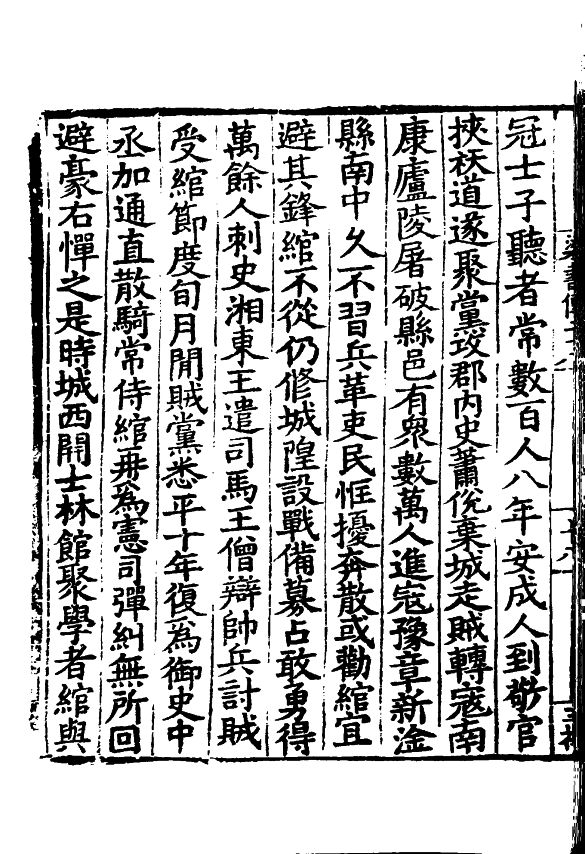 冠士子聽者常數百人八年安成人劉敬宫
挾祅道遂聚黨攻郡内史蕭侻棄城走賊轉寇南
康廬陵屠破縣邑有衆數萬人進寇豫章新淦
縣南中久不習兵革吏民恇擾奔散或勸綰宜
避其鋒綰不從仍修城隍設戰備募占敢勇得
萬餘人刺史湘東王遣司馬王僧辯帥兵討賊
受綰節度旬月閒賊黨悉平十年復爲御史中
丞加通直散騎常侍綰再爲憲司彈糾無所回
避豪右憚之是時城西開士林館聚學者綰與